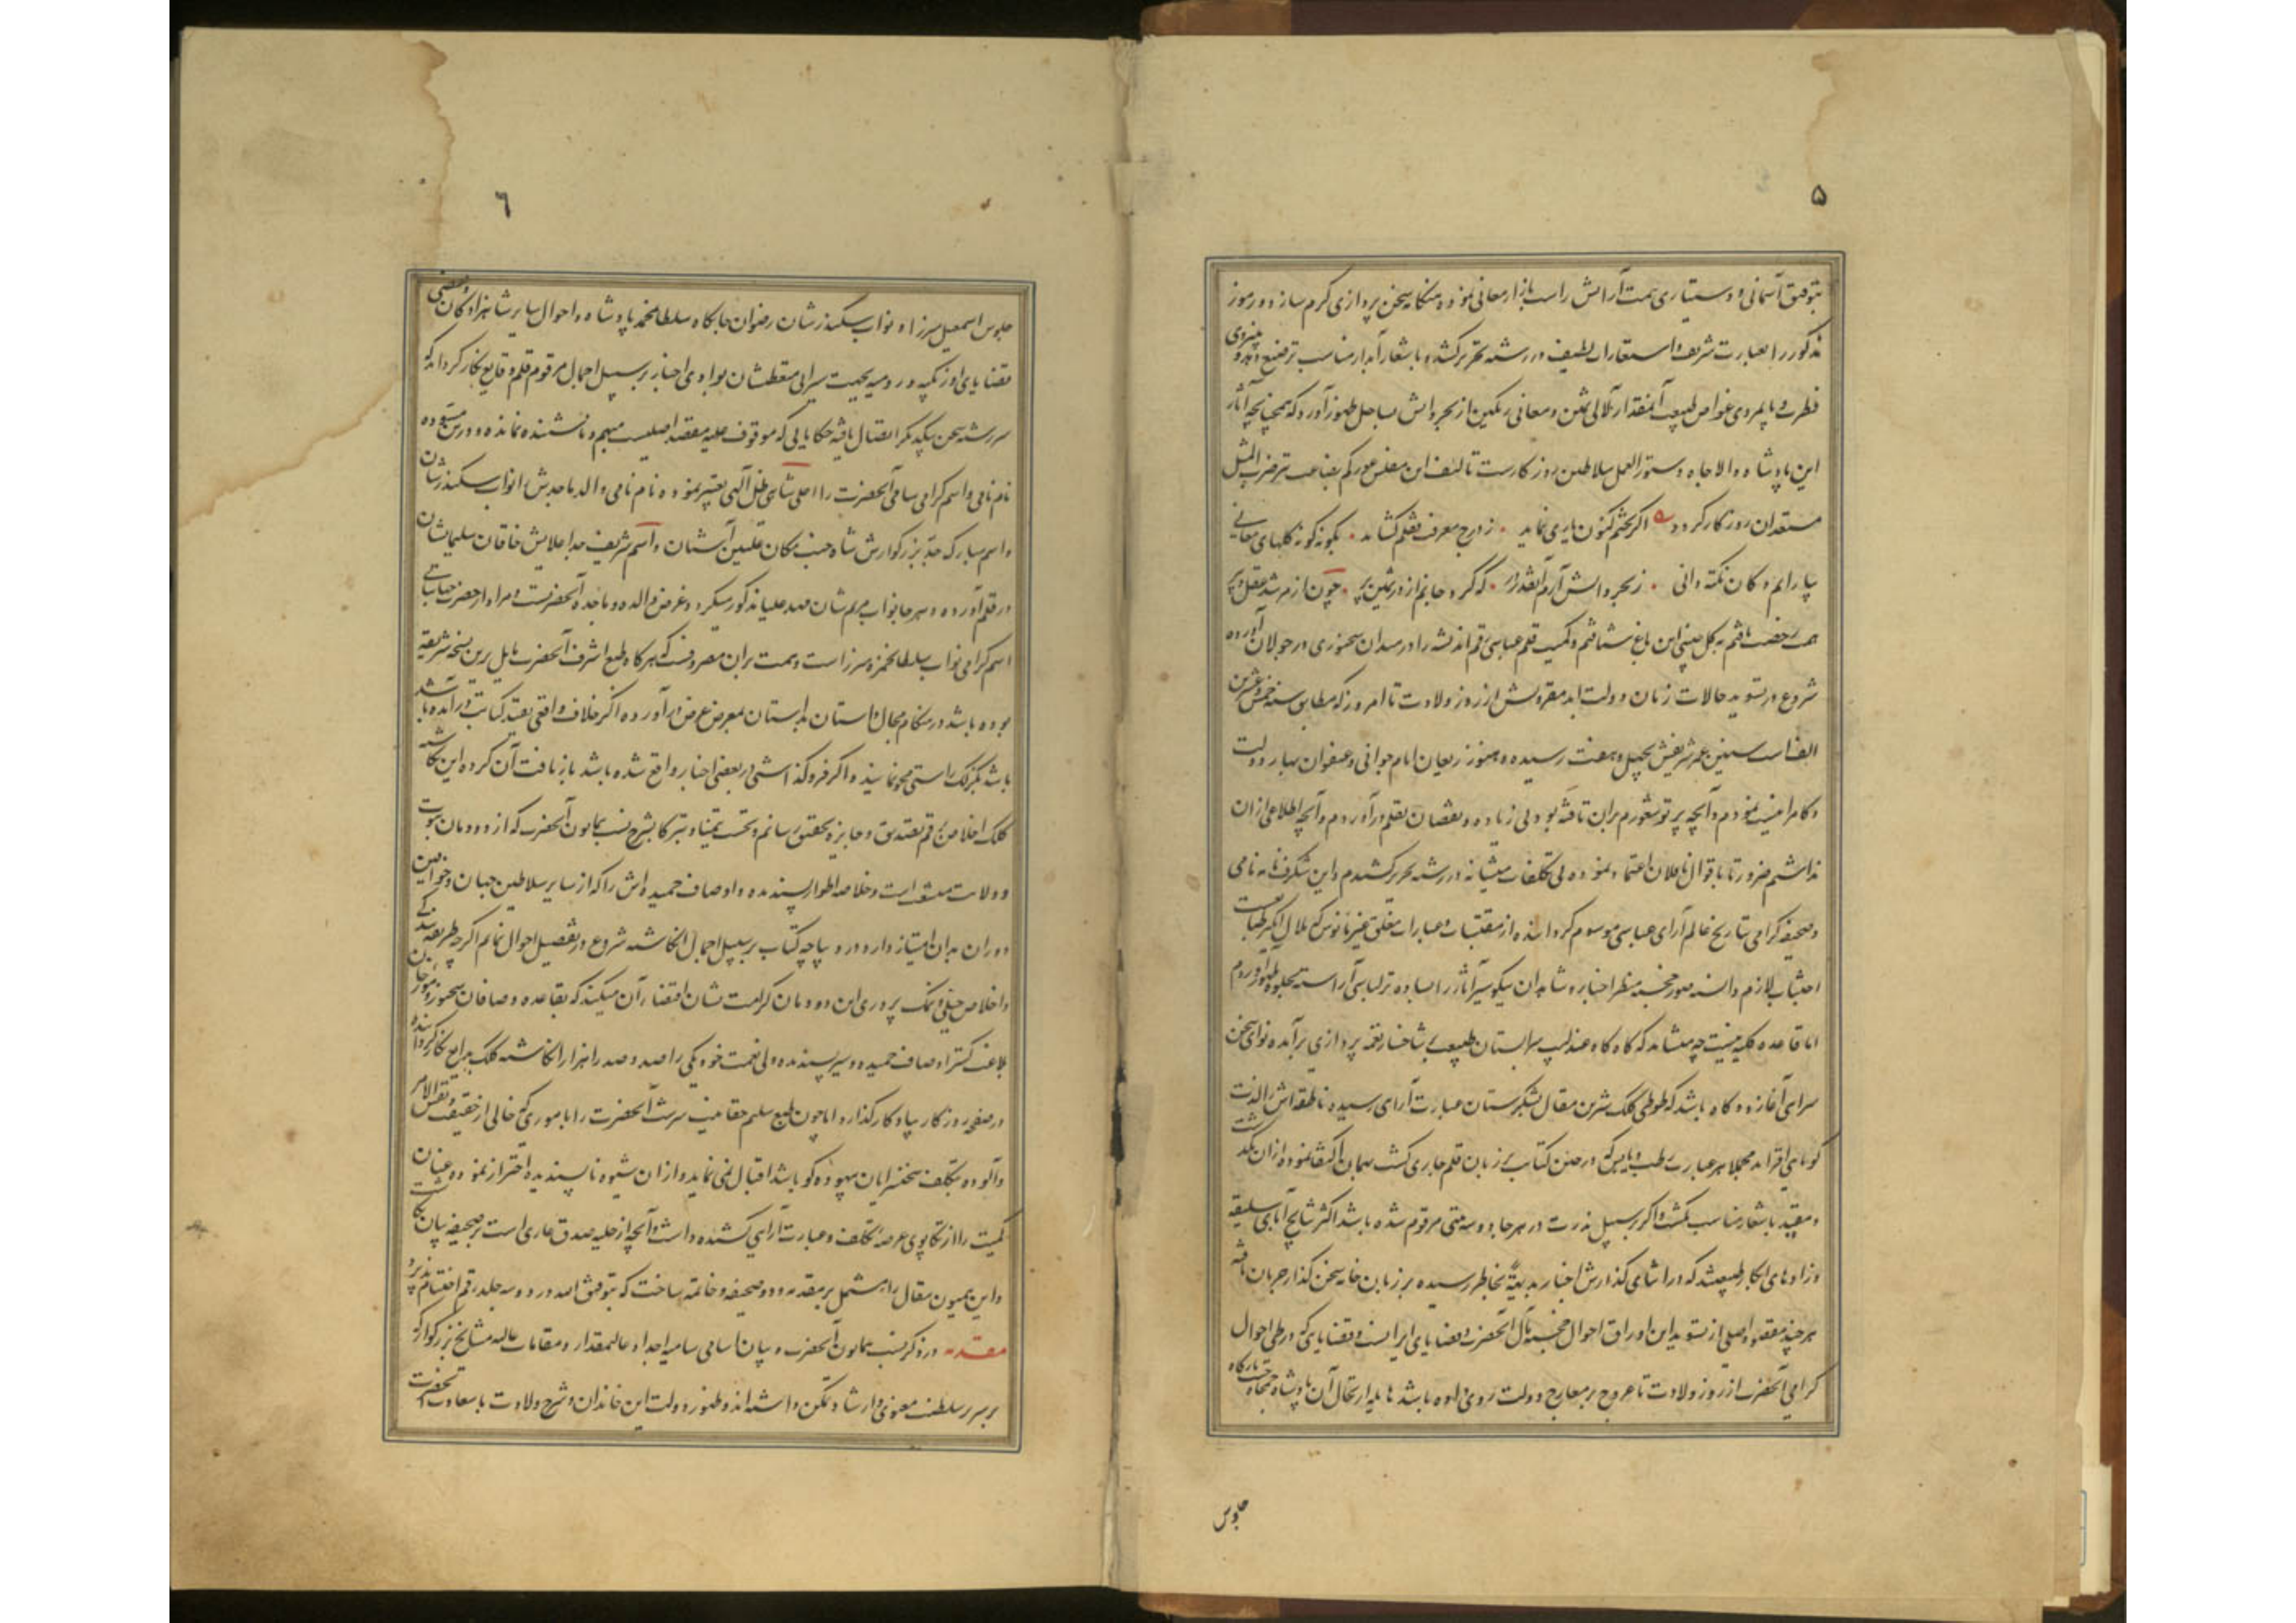 ۵
بتوفیق آسمانی و دستیاری همت آرایش راست بازار معانی نموده هنگامه سخن پردازی گرم سازد و رموز
مذکور را بعبارت شریف و استعارات لطیف در رشته تحریر کشد و باشعار آبدار مناسب ترصیع دهد و بنیروی
فطرت و پایمردی غواص طبیعت آنمقدار لآلی ثمین و معانی رنگین از بحر دانش بساحل ظهور آورد که همچنانچه آثار
این پادشاه والاجاه دستورالعمل سلاطین روزگارست تالیف این مفلس عور کم بضاعت نیز ضرب المثل
مستعدان روزگار گردد اگر بختم کنون یاری نماید زدرج معرفت قفلم گشاید بگونه گونه گلهای معانی
بیارایم دکان نکته دانی زبحر دانش آرم آنقدر در که گردد جانم از در ثمین پر چون از مرشد عقل و پیر
همت رخصت یافتم به گل چینی این باغ شتافتم و کمیت قلم عباسی رقم اندیشه را در میدان سخنوری در جولان آورده
شروع در تسوید حالات زمان دولت ابد مقرونش از روز ولادت تا امروز که مطابق سنه خمس و عشرین
الف است سنین عمر شریفش بچهل و هفت رسیده و هنوز ریعان ایام جوانی و عنفوان بهار دولت
و کامرانیست نمودم و آنچه پرتو شعورم بران تافته بود بی زیاده و نقصان بقلم درآوردم و آنچه اطلاعی ازان
نداشتم ضرورتا باقوال ناقلان اعتماد نموده بی تکلفات منشیانه در رشته تحریر کشیدم و این شگرف نامه نامی
و صحیفه گرامی بتاریخ عالم آرای عباسی موسوم گردانیده از مقتبسات و عبارات مغلق غیر مانوس که ملال انگیز طباعست
اجتناب لازم دانسته صور خجسته منظر اخبار و شاهدان نیکو سیر آثار را بساده تر لباسی آراسته بجلوه ظهور آوردم
اما قاعده کلیه نیست چه میشاید که گاه گاه عندلیب سرابستان طبیعت بشاخسار نغمه پردازی برآمده نوای سخن
سرایی آغازد و گاه باشد که طوطی کلک شیرین مقال بشکرستان عبارت آرایی رسیده ناطقه اش را لذت
گویایی افزاید مجملا هر عبارت رطب و یابس که در حین کتابت بر زبان قلم جاری گشت بهمان اکتفا نموده ازان نگذشت
و مقید باشعار مناسب نگشت و اگر بر سبیل ندرت در هر جا دو سه بیتی مرقوم شده باشد اکثر نتایج آبای سلیقه
و زادهای ابکار طبیعتند که در اثنای گذارش اخبار بدیهة بخاطر رسیده بر زبان خامه سخن گذار جریان یافته
هر چند مقصود اصلی از تسوید این اوراق احوال خجسته مآل آنحضرت و قضایای ایرانست و قضایایی که در طی احوال
گرامی آنحضرت از روز ولادت تا عروج بر معارج دولت روی داده باشد تا بدارتحال آن پادشاه جمجاه جنت بارگاه
جلوس
۶
جلوس اسمعیل میرزا و نواب سکندرشان رضوان جایگاه سلطان محمد پادشاه و احوال سایر شاهزادگان و بعضی
قضایای اوزبکیه و رومیه بجهت سیرابی متعطشان بوادی اخبار بر سبیل اجمال مرقوم قلم وقایع نگار گردانید که
سررشته سخن بیکدیگر اتصال یافته حکایاتی که موقوف علیه مقصد اصلیست مبهم و نانشته نمانده و درین مسوده
نام نامی و اسم گرامی سامی آنحضرت را اعلی شاهی ظل الهی تعبیر نموده نام نامی والد ماجدش نواب سکندرشان
و اسم مبارک جد بزرگوارش شاه جنت مکان علیین آشیان و اسم شریف جد اعلایش خاقان سلیمانشان
در قلم آورده و هر جا نواب مریم شان مهد علیا مذکور میگردد غرض والده ماجده آنحضرتست و مراد از حضرت جنابانی
اسم گرامی نواب سلطان حمزه میرزاست و همت بران مصروفست که هرگاه طبع اشرف آنحضرت مایل برین نسخه شریفه
بوده باشد در هنگام مجال داستان بداستان بمعرض عرض درآورده اگر خلاف واقعی بقید کتابت درآمده باشد
باشد بگزلک راستی محو نمایند و اگر فروگذاشتی در بعضی اخبار واقع شده باشد بازیافت آن کرده این نگاشته
کلک اخلاص را رقم تصدیق و جایزه تحقیق رسانم و نخست تیمنا و تبرکا بشرح نسب همایون آنحضرت که از دودمان نبوت
و ولایت منشعب است و خلاصه اطوار پسندیده و اوصاف حمیده اش را که از سایر سلاطین جهان و خواقین
دوران بدان امتیاز دارد در دیباچه کتاب بر سبیل اجمال نگاشته شروع در تفصیل احوال نمایم اگرچه طریقه بندگی
و اخلاص جبلی و نمک پروری این دودمان کرامت نشان اقتضاء آن میکند که بقاعده وصافان سخنور و موزخان
بلاغت گستر اوصاف حمیده و سیر پسندیده ولی نعمت خود یکی را صد و صد را هزار نگاشته کلک بدایع نگار گردانیده
در صفحه روزگار بیادگار گذارد اما چون طبع سلیم حقانیت سرشت آنحضرت را باموری که خالی از حقیقت و نفس الامر
و آلوده بتکلف سخنسرایان بیهوده گو باشد اقبال نمی نماید و ازان شیوه ناپسندیده احتراز نموده عنان
کمیت را از تکاپوی عرصه تکلف و عبارت آرایی کشیده داشت و آنچه از حلیه صدق عاری است بر صحیفه بیان نگاشت
و این همیون مقال را مشتمل بر مقدمه و دو صحیفه و خاتمه ساخت که بتوفیق الله در دو سه جلد رقم اختتام پذیرد
مقدمه در ذکر نسب همایون آنحضرت و بیان اسامی سامیه اجداد عالیمقدار و مقامات عالیه مشایخ بزرگوار که
بر سریر سلطنت معنوی و ارشاد تمکن داشته اند و ظهور دولت این خاندان و شرح ولادت باسعادت آنحضرت